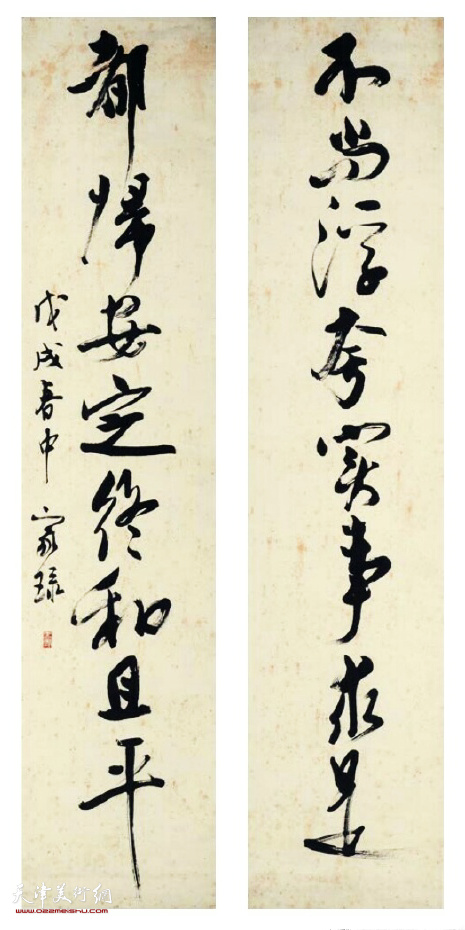 不尚浮夸實事求是
都歸安定終和且平
戊戌春中
天津美术网
www.022meishu.com